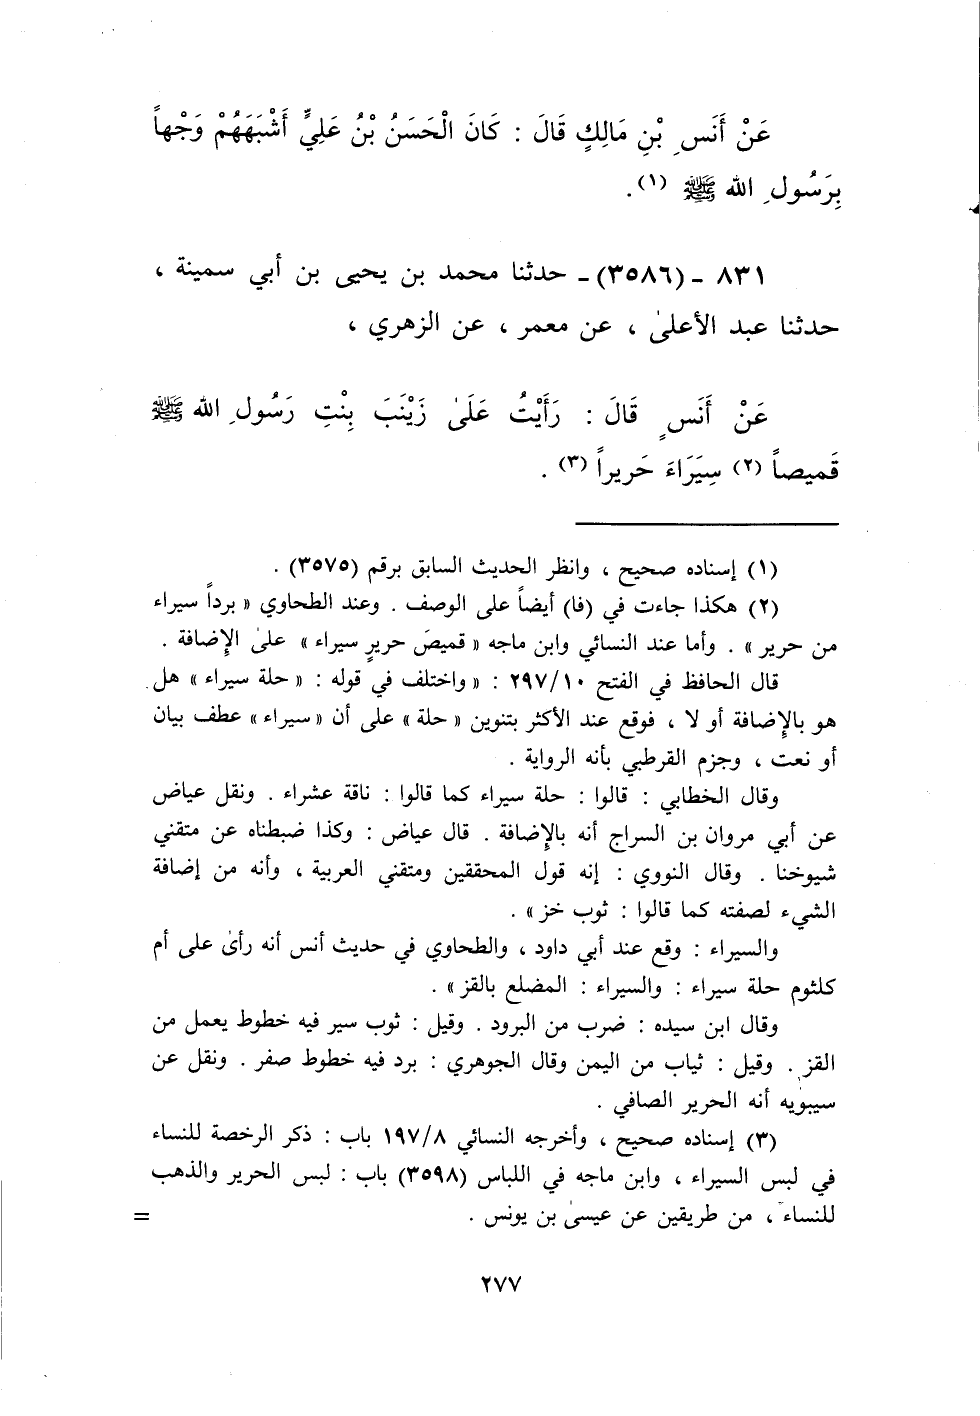 عَنْ أَنَسِ بْنِ مَالِكٍ قَالَ : كَانَ الْحَسَنُ بْنُ عَلِيٍّ أَشْبَهَهُمْ وَجْهاً
بِرَسُولِ الله ﷺ (١).
٨٣١ - (٣٥٨٦)- حدثنا محمد بن يحيى بن أبي سمينة ،
حدثنا عبد الأعلىٰ ، عن معمر ، عن الزهري ،
عَنْ أَنَسٍ قَالَ : رَأَيْتُ عَلَىٰ زَيْنَبَ بِنْتِ رَسُولِ الله ﷺ
قَميصاً (٢) سِيَرَاءَ حَريراً (٣) .
(١) إسناده صحيح ، وانظر الحديث السابق برقم (٣٥٧٥) .
(٢) هكذا جاءت في (فا) أيضاً على الوصف . وعند الطحاوي « برداً سيراء
من حرير » . وأما عند النسائي وابن ماجه « قميصَ حريرٍ سيراء » علىٰ الإِضافة .
قال الحافظ في الفتح ٢٩٧/١٠ : « واختلف في قوله : « حلة سيراء » هل
هو بالإِضافة أو لا ، فوقع عند الأكثر بتنوين « حلة » على أن « سيراء » عطف بيان
أو نعت ، وجزم القرطبي بأنه الرواية .
وقال الخطابي : قالوا : حلة سيراء كما قالوا : ناقة عشراء . ونقل عياض
عن أبي مروان بن السراج أنه بالإِضافة . قال عياض : وكذا ضبطناه عن متقني
شيوخنا . وقال النووي : إنه قول المحققين ومتقني العربية ، وأنه من إضافة
الشيء لصفته كما قالوا : ثوب خز » .
والسيراء : وقع عند أبي داود ، والطحاوي في حديث أنس أنه رأىٰ على أم
كلثوم حلة سيراء : والسيراء : المضلع بالقز » .
وقال ابن سيده : ضرب من البرود . وقيل : ثوب سير فيه خطوط يعمل من
القز . وقيل : ثياب من اليمن وقال الجوهري : برد فيه خطوط صفر . ونقل عن
سيبويه أنه الحرير الصافي .
(٣) إسناده صحيح ، وأخرجه النسائي ١٩٧/٨ باب : ذكر الرخصة للنساء
في لبس السيراء ، وابن ماجه في اللباس (٣٥٩٨) باب : لبس الحرير والذهب
للنساء ، من طريقين عن عيسىٰ بن يونس . =
٢٧٧